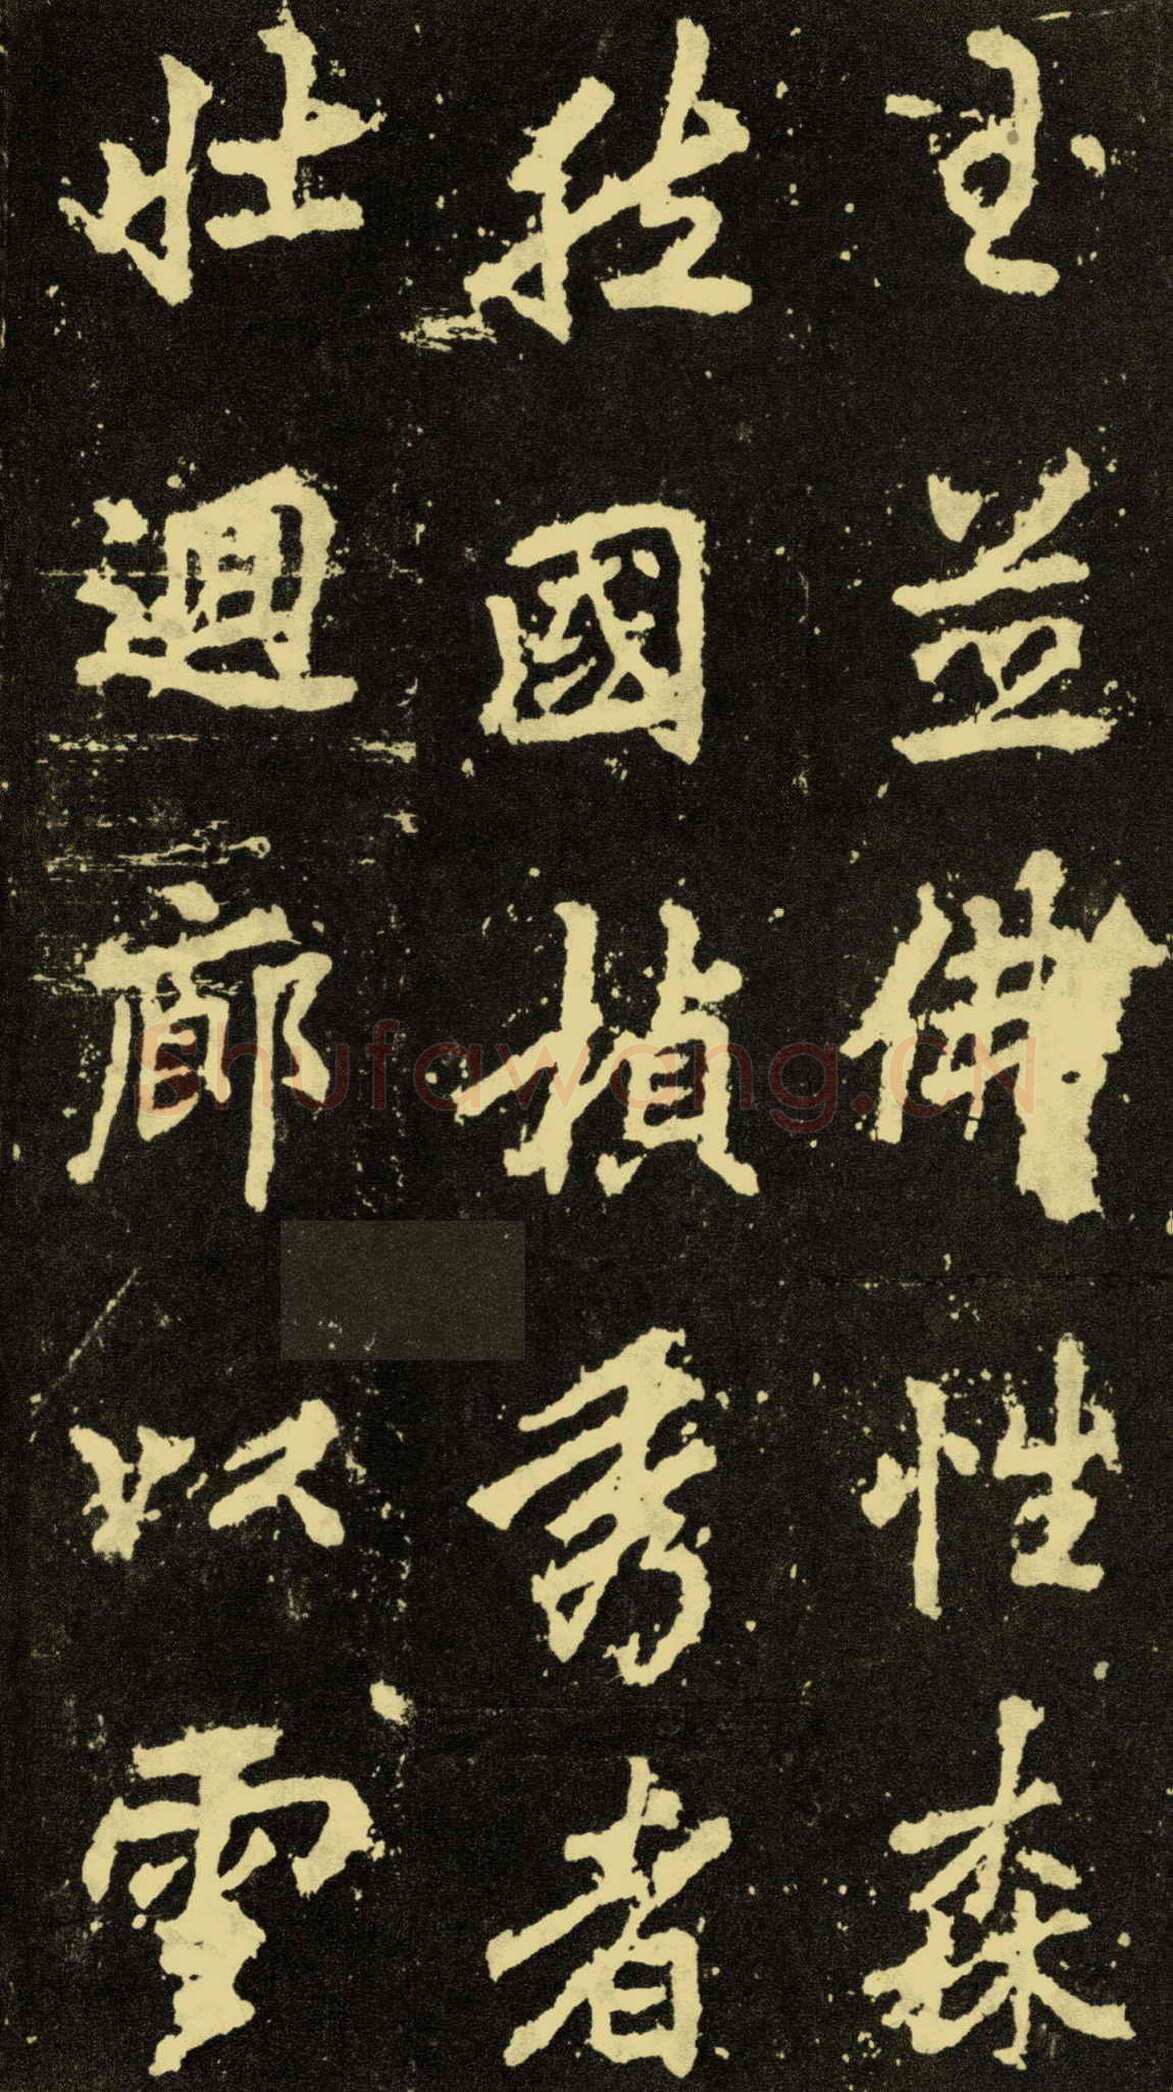 玉並佛性森
於國楨秀者
壯迴廊以雲
shufawang.CN